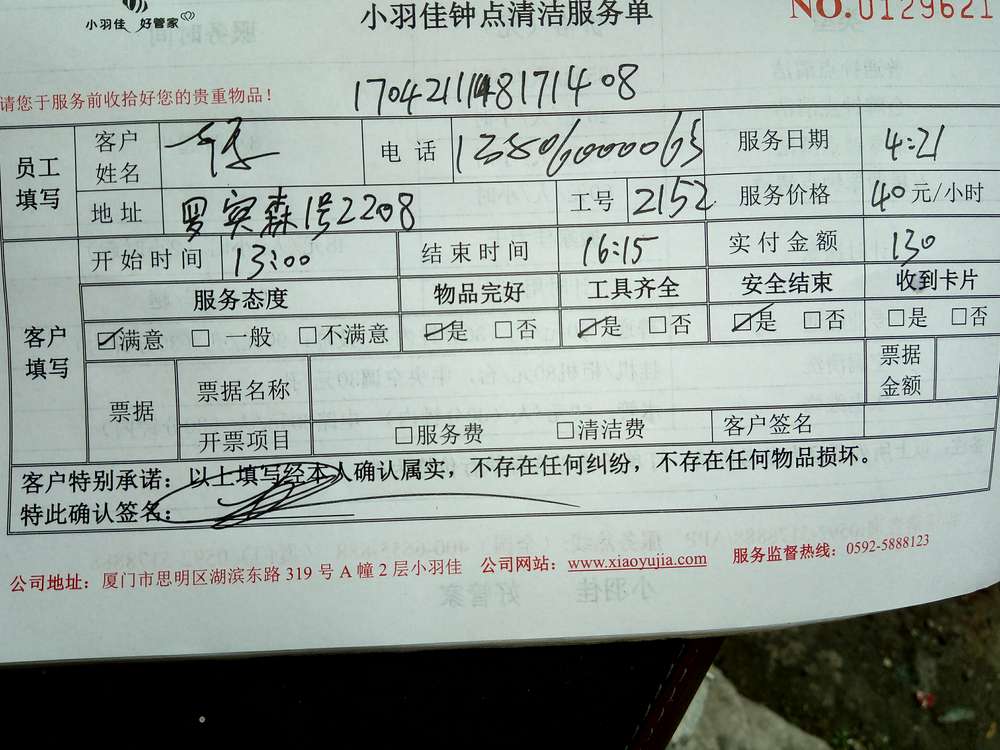 小羽佳 好管家
小羽佳钟点清洁服务单
NO.0129621
请您于服务前收拾好您的贵重物品!
员工填写
客户姓名
电话
服务日期 4:21
地址
1号2208
工号 2152
服务价格 40元/小时
客户填写
开始时间 13:00
结束时间 16:15
实付金额 130
服务态度 物品完好 工具齐全 安全结束 收到卡片
☑满意 □一般 □不满意 ☑是 □否 ☑是 □否 ☑是 □否 □是 □否
票据
票据名称
票据金额
开票项目 □服务费 □清洁费 客户签名
客户特别承诺:以上填写经本人确认属实,不存在任何纠纷,不存在任何物品损坏。
特此确认签名:
公司地址:厦门市思明区湖滨东路319号A幢2层小羽佳 公司网站:www.xiaoyujia.com 服务监督热线:0592-5888123